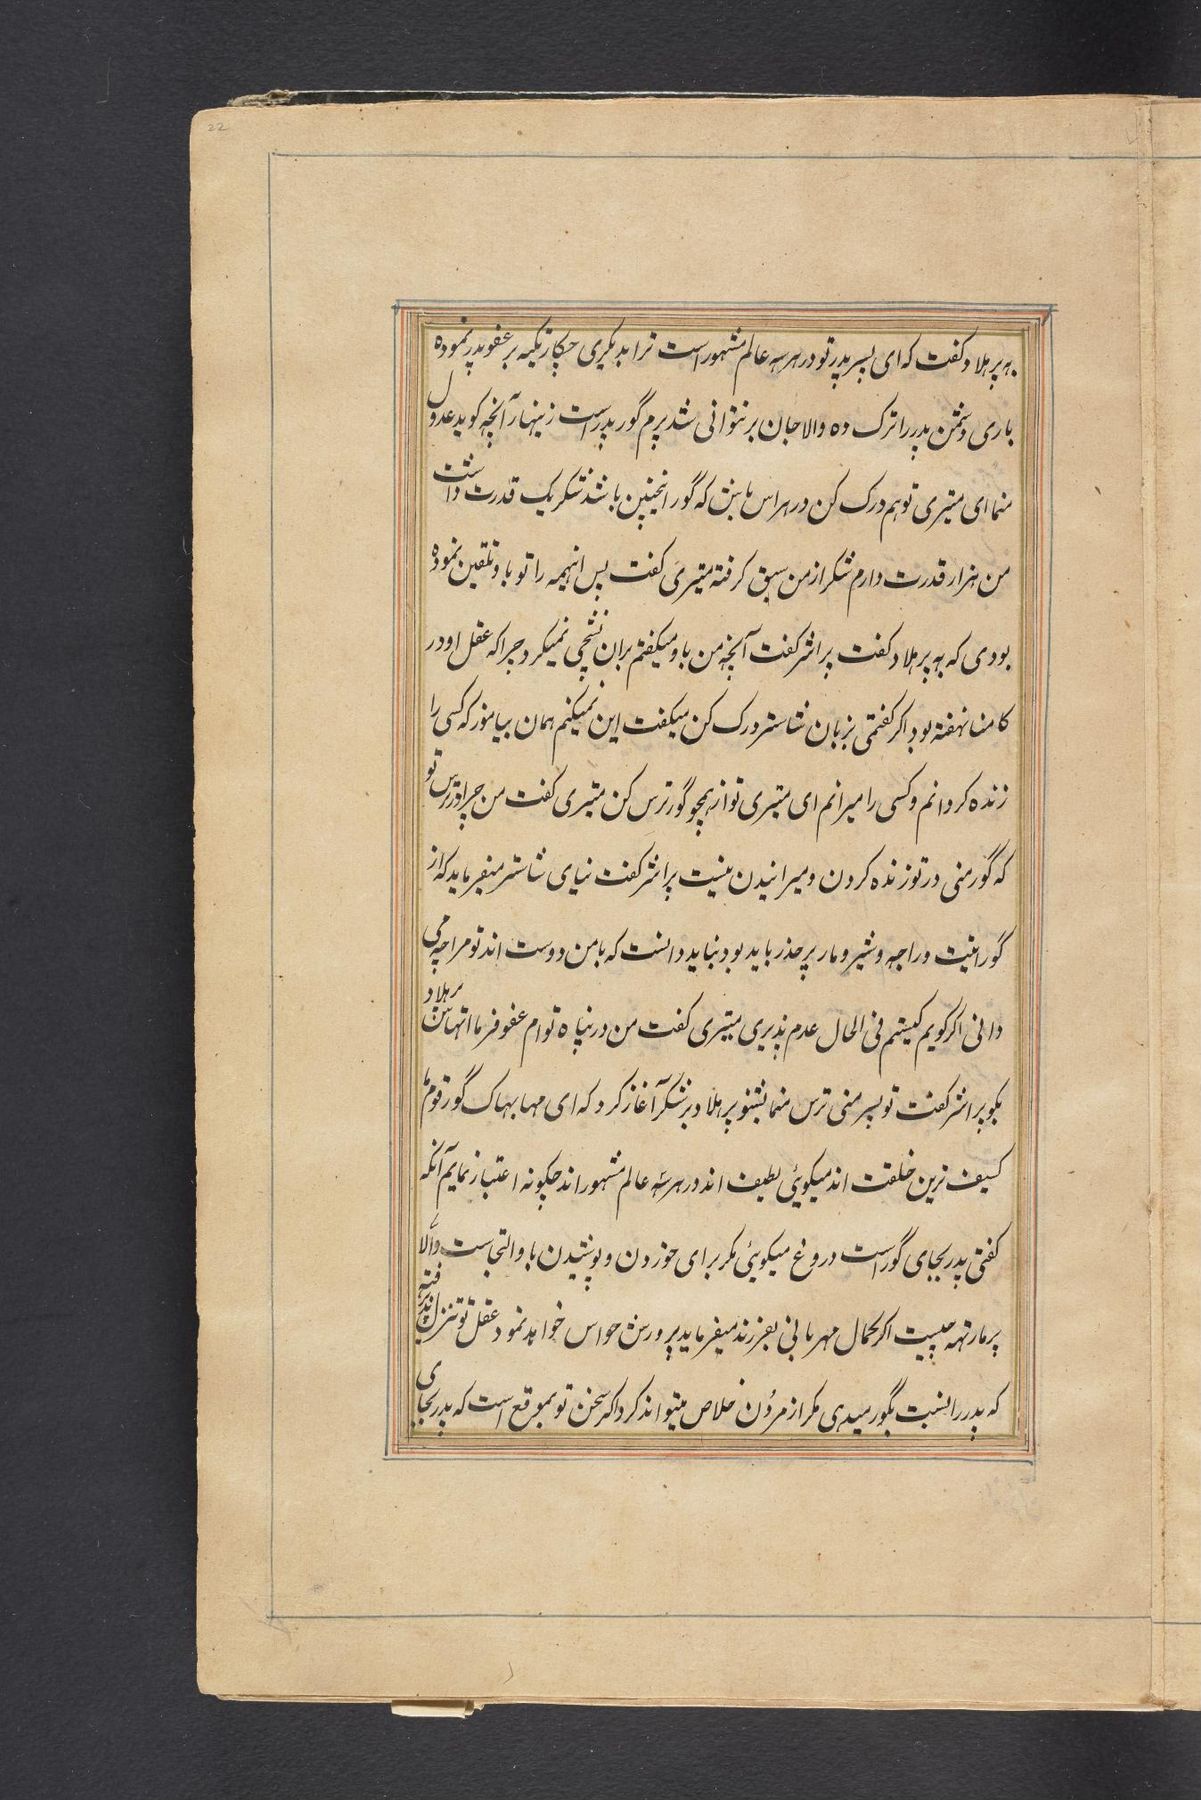 22
به پرهلاد کفت که ای پسر پدر تو در هر سه عالم مشهور است ترا بدیکری چکار تکیه بر عفو پدر نموده
باری دشمن پدر را ترک ده والا جان بر نتوانی شد پرم گور پدر است زینهار آنچه کوید عدول
منما ای متیری تو هم درک کن در هراس باش که گور اینچنین باشد شکر یک قدرت داشت
من هزار قدرت دارم شکر از من سبق کرفته متیری کفت پس اینهمه را تو باو تلقین نموده
بودی که به پرهلاد کفت پراشر کفت آنچه من باو میکفتم بران نسچی نمیکرد چرا که عقل او در
کامنا نهفته بود اکر کفتمی بزبان شاستر درک کن میکفت این نمیکنم همان بیاموز که کسی را
زنده کردانم و کسی را میرانم ای متیری تو از همچو گور ترس کن متیری کفت من چرا ترس تو
که گور منی در تو زنده کردن و میرانیدن نیست پراشر کفت نیای شاستر میفرماید که از
گور اینت و راجه و شیر و مار پر حذر باید بود نباید دانست که با من دوست اند تو مرا چه می
دانی اکر کویم کیستم فی الحال عدم پذیری متیری کفت من در پناه توام عفو فرما اتهاس پرهلاد
بکو پراشر کفت تو پسر منی ترس منما بشنو پرهلاد بر شکر آغاز کرد که ای مها بهاک گور قوم ما
کسیف ترین خلقت اند میکوئی لطیف اند در هر سه عالم مشهور اند چکونه اعتبار نمایم آنکه
کفتی پدر بجای گور است دروغ میکوئی مکر برای خوردن و پوشیدن باو التجاست والا
پرمارتهه چیست اکر بکمال مهربانی بفرزند میفرماید پرورش حواس خواهد نمود عقل تو تنزل پذیرفته
که پدر را نسبت بگور میدهی مکر از مردن خلاص میتواند کرد اکر سخن تو بموقع است که پدر بجای